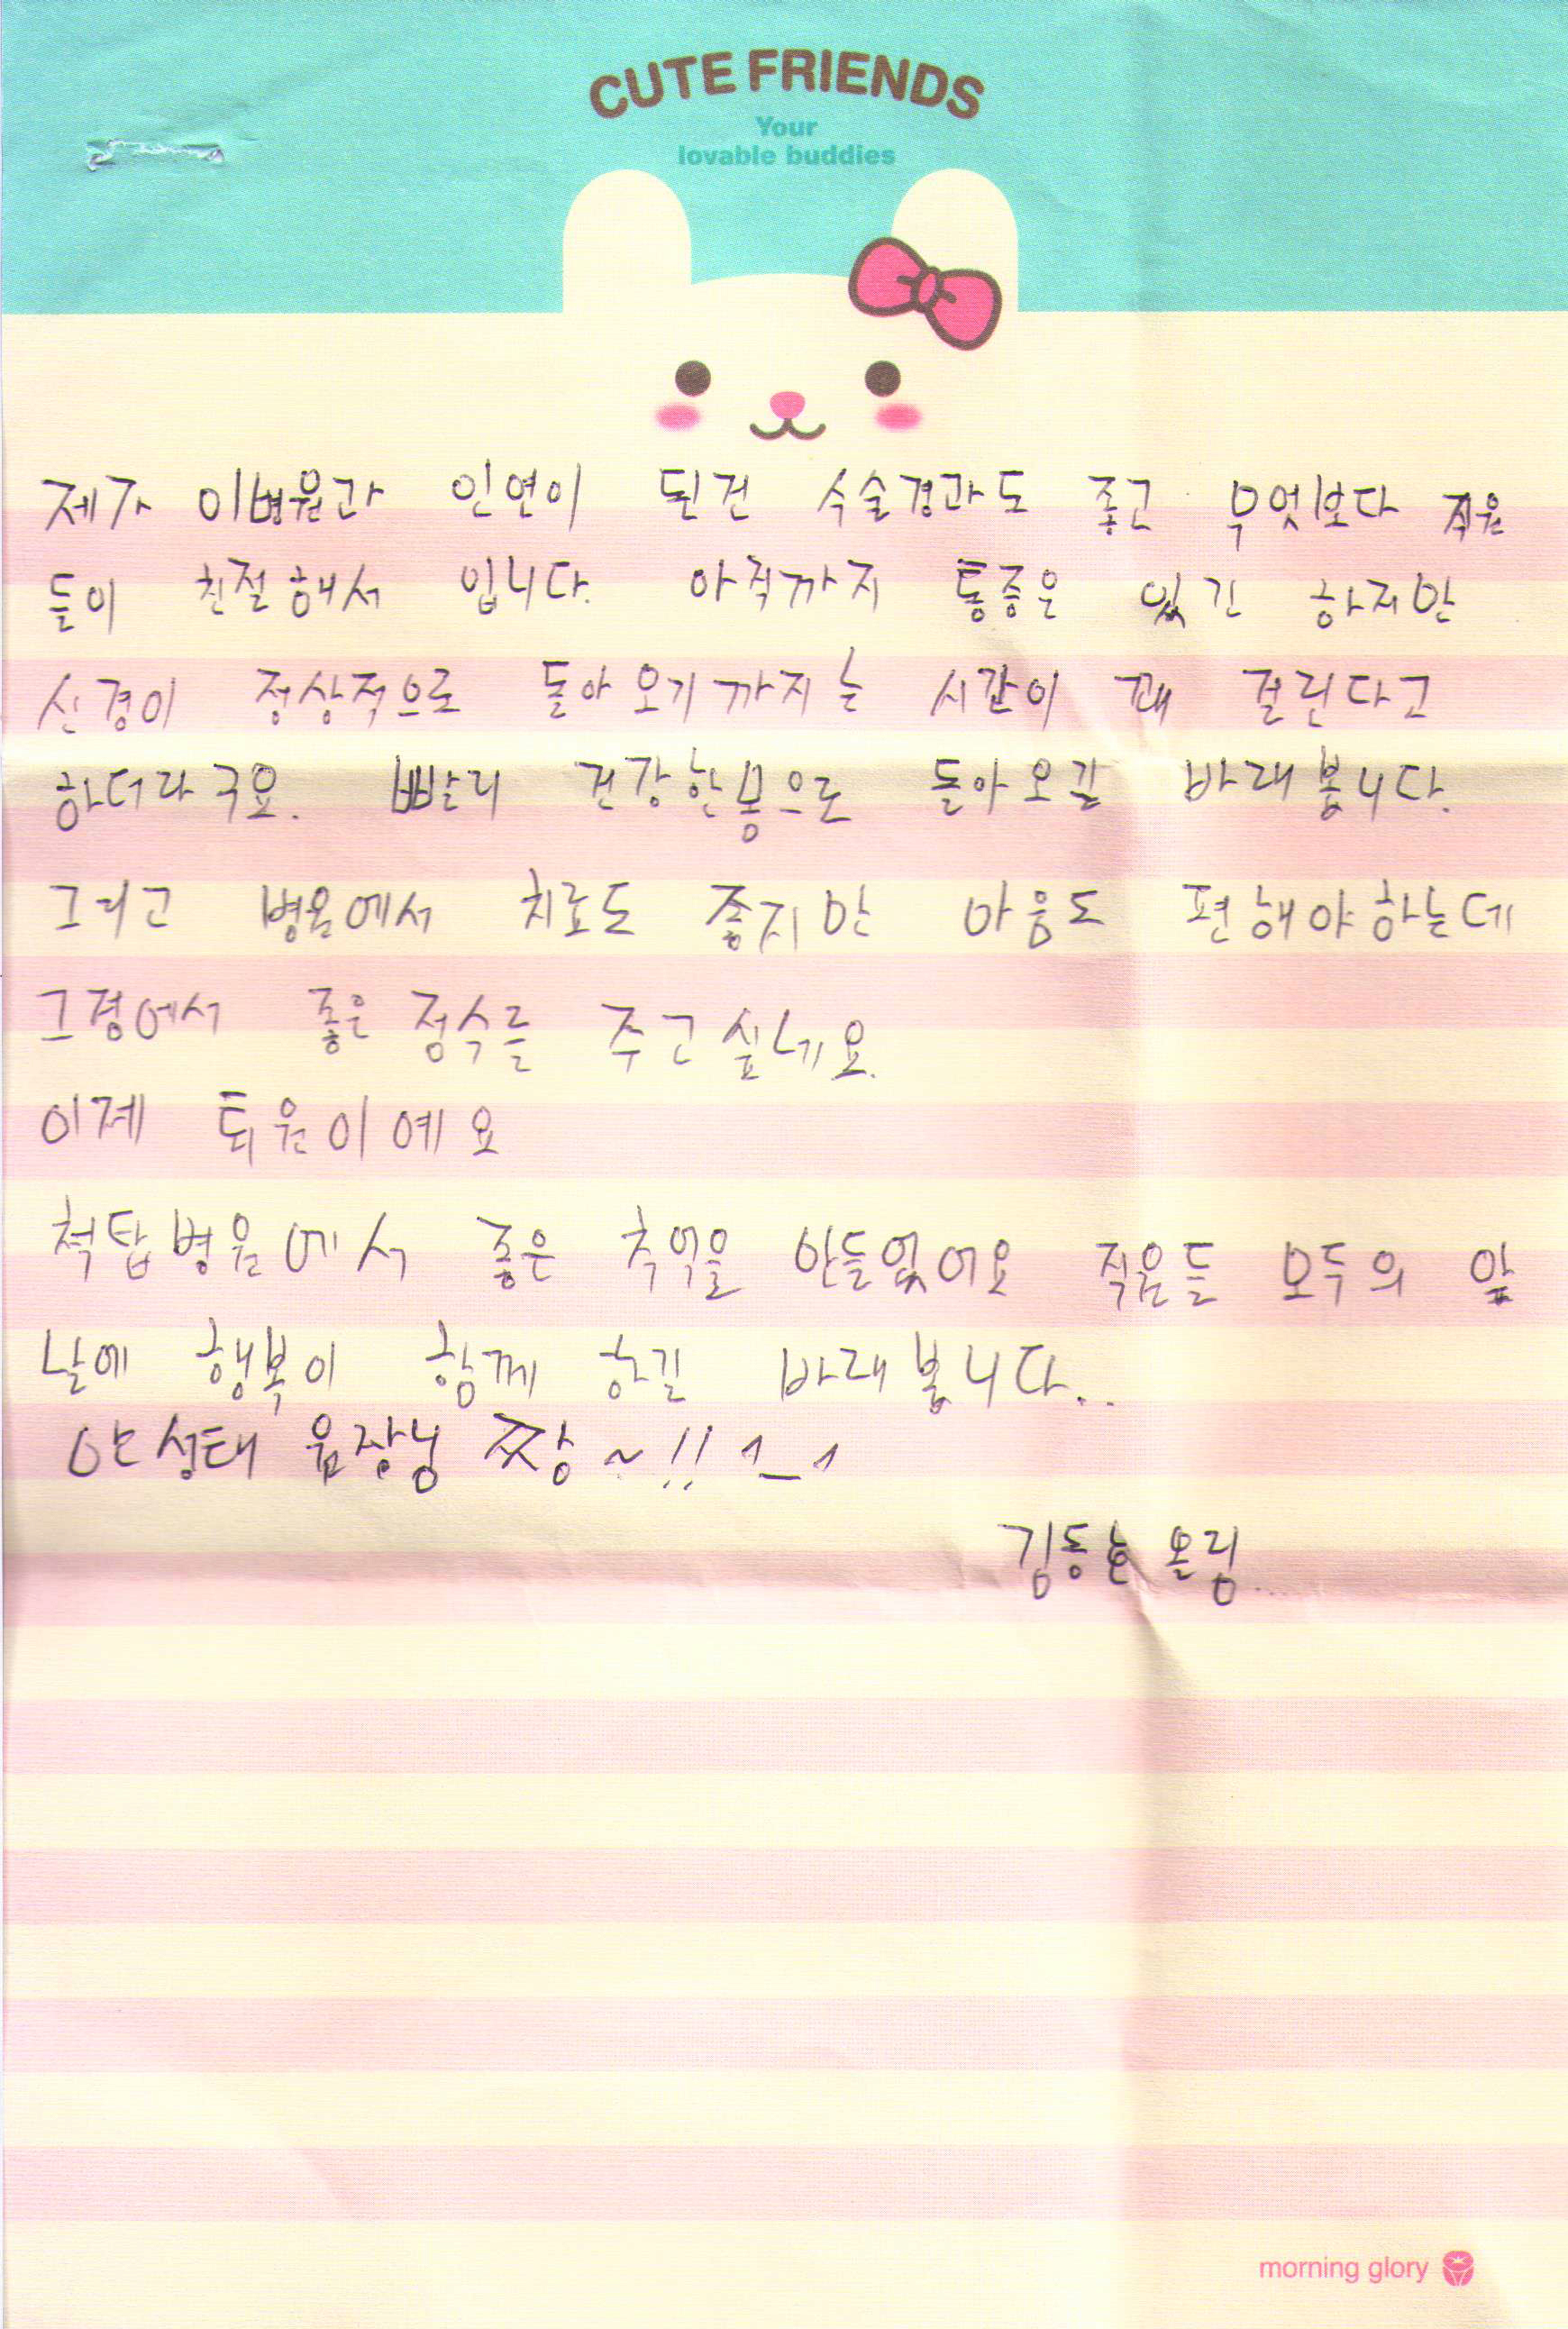 CUTE FRIENDS
Your
lovable buddies
제가 이병원과 인연이 된건 수술경과도 좋고 무엇보다 직원
들이 친절해서 입니다. 아직까지 통증은 있긴 하지만
신경이 정상적으로 돌아오기까지는 시간이 꽤 걸린다고
하더라구요. 빨리 건강한몸으로 돌아오길 바래봅니다.
그리고 병원에서 치료도 좋지만 마음도 편해야하는데
그점에서 좋은 점수를 주고싶네요.
이제 퇴원이예요
척탑병원에서 좋은 추억을 만들었어요 직원들 모두의 앞
날에 행복이 함께 하길 바래봅니다..
안성태 원장님 짱~!! ^_^
김동현 올림....
morning glory